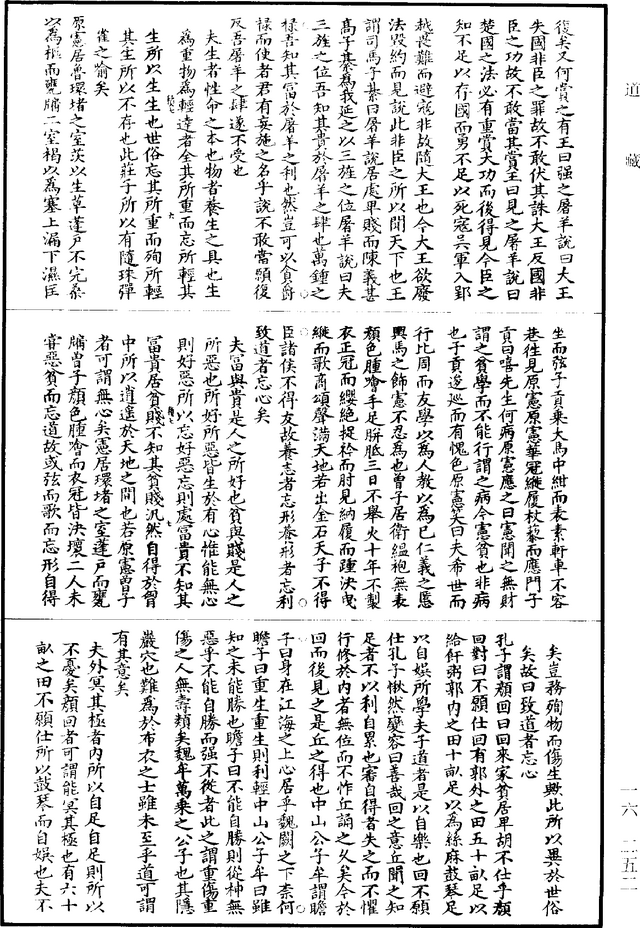 復矣又何賞之有王曰强之屠羊說曰大王
失國非臣之罪故不敢伏其誅大王反國非
臣之功故不敢當其賞王曰見之屠羊說曰
楚國之法必有重賞大功而後得見今臣之
知不足以存國而勇不足以死寇吳軍入郢
越畏難而避寇非故隨大王也今大王欲廢
法毀約而見說此非臣之所以聞天下也王
謂司馬子綦曰屠羊說居處卑賤而陳義甚
高子綦為我延之以三旌之位屠羊說曰夫
三旌之位吾知其貴於屠羊之肆也萬鍾之
祿吾知其富於屠羊之利也然豈可以貪爵
祿而使吾君有妄施之名乎說不敢當願復
反吾屠羊之肆遂不受也
夫生者性命之本也物者養生之具也生
為重物為輕達者全其所重而忘所輕其
生所以生生也世俗忘其所重而殉所輕
其生所以不存也此莊子所以有隨珠彈
雀之喻矣
原憲居魯環堵之室茨以生草蓬戶不完桑
以為樞而甕牖二室褐以為塞上漏下濕匡
坐而弦子貢乘大馬中紺而表素軒車不容
巷往見原憲原憲華冠縰履杖藜而應門子
貢曰嘻先生何病原憲應之曰憲聞之無財
謂之貧學而不能行謂之病今憲貧也非病
也子貢逡巡而有愧色原憲笑曰夫希世而
行比周而友學以為人教以為己仁義之慝
輿馬之飾憲不忍為也曾子居衛縕袍無表
顏色腫噲手足胼胝三日不舉火十年不製
衣正冠而纓絕捉衿而肘見納履而踵決曳
縰而歌商頌聲滿天地若出金石天子不得
臣諸侯不得友故養志者忘形養形者忘利
致道者忘心矣
夫富與貴是人之所好也貧與賤是人之
所惡也所好所惡皆生於有心惟能無心
則好惡所以忘好惡忘則處富貴不知其
富貴居貧賤不知其貧賤汎然自得於胷
中所以逍遙於天地之間也若原憲曾子
者可謂無心矣憲居環堵之室蓬戶而甕
牖曾子顏色腫噲而衣冠皆決壞二人未
嘗惡貧而忘道故或弦而歌而忘形自得
矣豈務殉物而傷生歟此所以異於世俗
矣故曰致道者忘心
孔子謂顏回曰回來家貧居卑胡不仕乎顏
回對曰不願仕回有郭外之田五十畝足以
給飦粥郭內之田十畝足以為絲麻鼓琴足
以自娛所學夫子道者是以自樂也回不願
仕孔子愀然變容曰善哉回之意丘聞之知
足者不以利自累也審自得者失之而不懼
行修於內者無位而不怍丘誦之久矣今於
回而後見之是丘之得也中山公子牟謂瞻
子曰身在江海之上心居乎魏闕之下奈何
瞻子曰重生重生則利輕中山公子牟曰雖
知之未能勝也瞻子曰不能自勝則從神無
惡乎不能自勝而强不從者此之謂重傷重
傷之人無壽類矣魏牟萬乘之公子也其隱
巖穴也難為於布衣之士雖未至乎道可謂
有其意矣
夫外冥其極者內所以自足自足則所以
不憂矣顏回者可謂能冥其極也有六十
畝之田不願仕所以鼓琴而自娛也夫不
道藏
一六 二五二